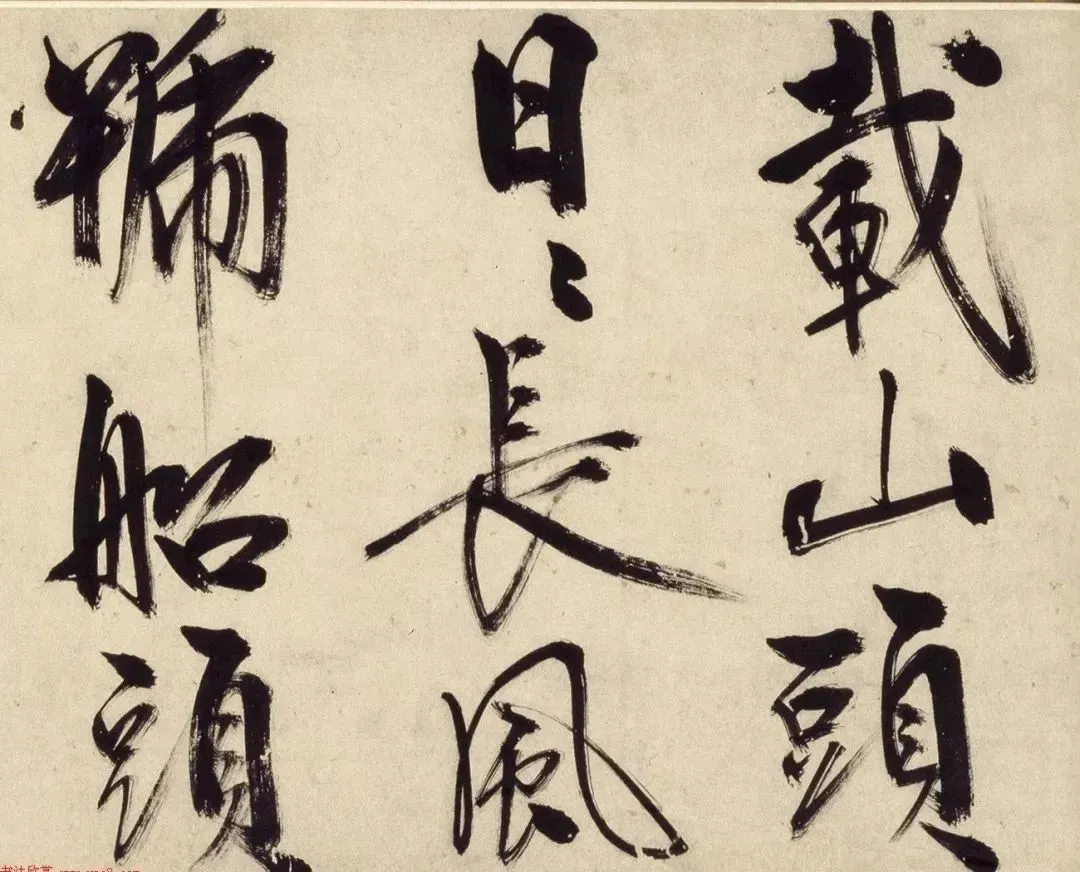 載山頭
日〻長風
船頭